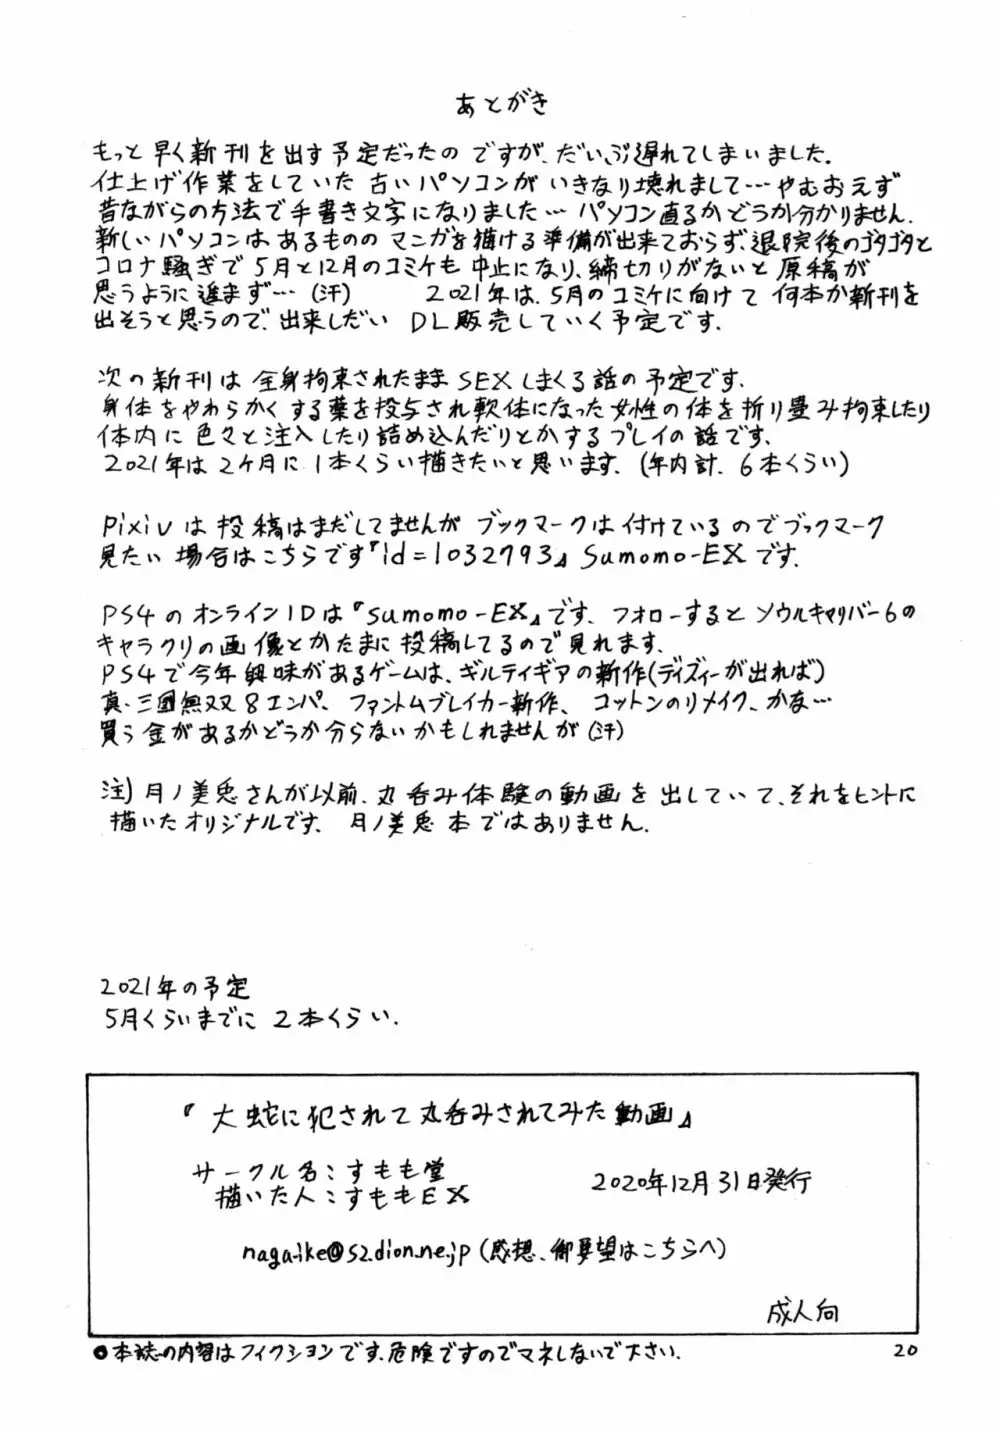 あとがき
もっと早く新刊を出す予定だったのですが、だいぶ遅れてしまいました。
仕上げ作業をしていた古いパソコンがいきなり壊れまして…やむおえず
昔ながらの方法で手書き文字になりました… パソコン直るかどうか分かりません。
新しいパソコンはあるもののマンガを描ける準備が出来ておらず、退院後のゴタゴタと
コロナ騒ぎで5月と12月のコミケも中止になり、締切りがないと原稿が
思うように進まず…(汗) 2021年は、5月のコミケに向けて何本か新刊を
出そうと思うので、出来しだいDL販売していく予定です。
次の新刊は全身拘束されたままSEXしまくる話の予定です。
身体をやわらかくする薬を投与され軟体になった女性の体を折り畳み拘束したり
体内に色々と注入したり詰め込んだりとかするプレイの話です。
2021年は2ケ月に1本くらい描きたいと思います。(年内計、6本くらい)
Pixivは投稿はまだしてませんがブックマークは付けているのでブックマーク
見たい場合はこちらです『id=1032793』Sumomo-EXです。
PS4のオンラインIDは『sumomo-EX』です、フォローするとソウルキャリバー6の
キャラクリの画像とかたまに投稿してるので見れます。
PS4で今年興味があるゲームは、ギルティギアの新作(ディズィーが出れば)
真・三國無双8エンパ、ファントムブレイカー新作、コットンのリメイク、かな…
買う金があるかどうか分らないかもしれませんが(汗)
注)月ノ美兎さんが以前、丸呑み体験の動画を出していて、それをヒントに
描いたオリジナルです、月ノ美兎本ではありません。
2021年の予定
5月くらいまでに2本くらい.
『大蛇に犯されて丸呑みされてみた動画』
サークル名：すもも堂
描いた人：すももEX
2020年12月31日発行
naga-ike@s2.dion.ne.jp(感想、御要望はこちらへ)
成人向
●本誌の内容はフィクションです、危険ですのでマネしないで下さい.
20